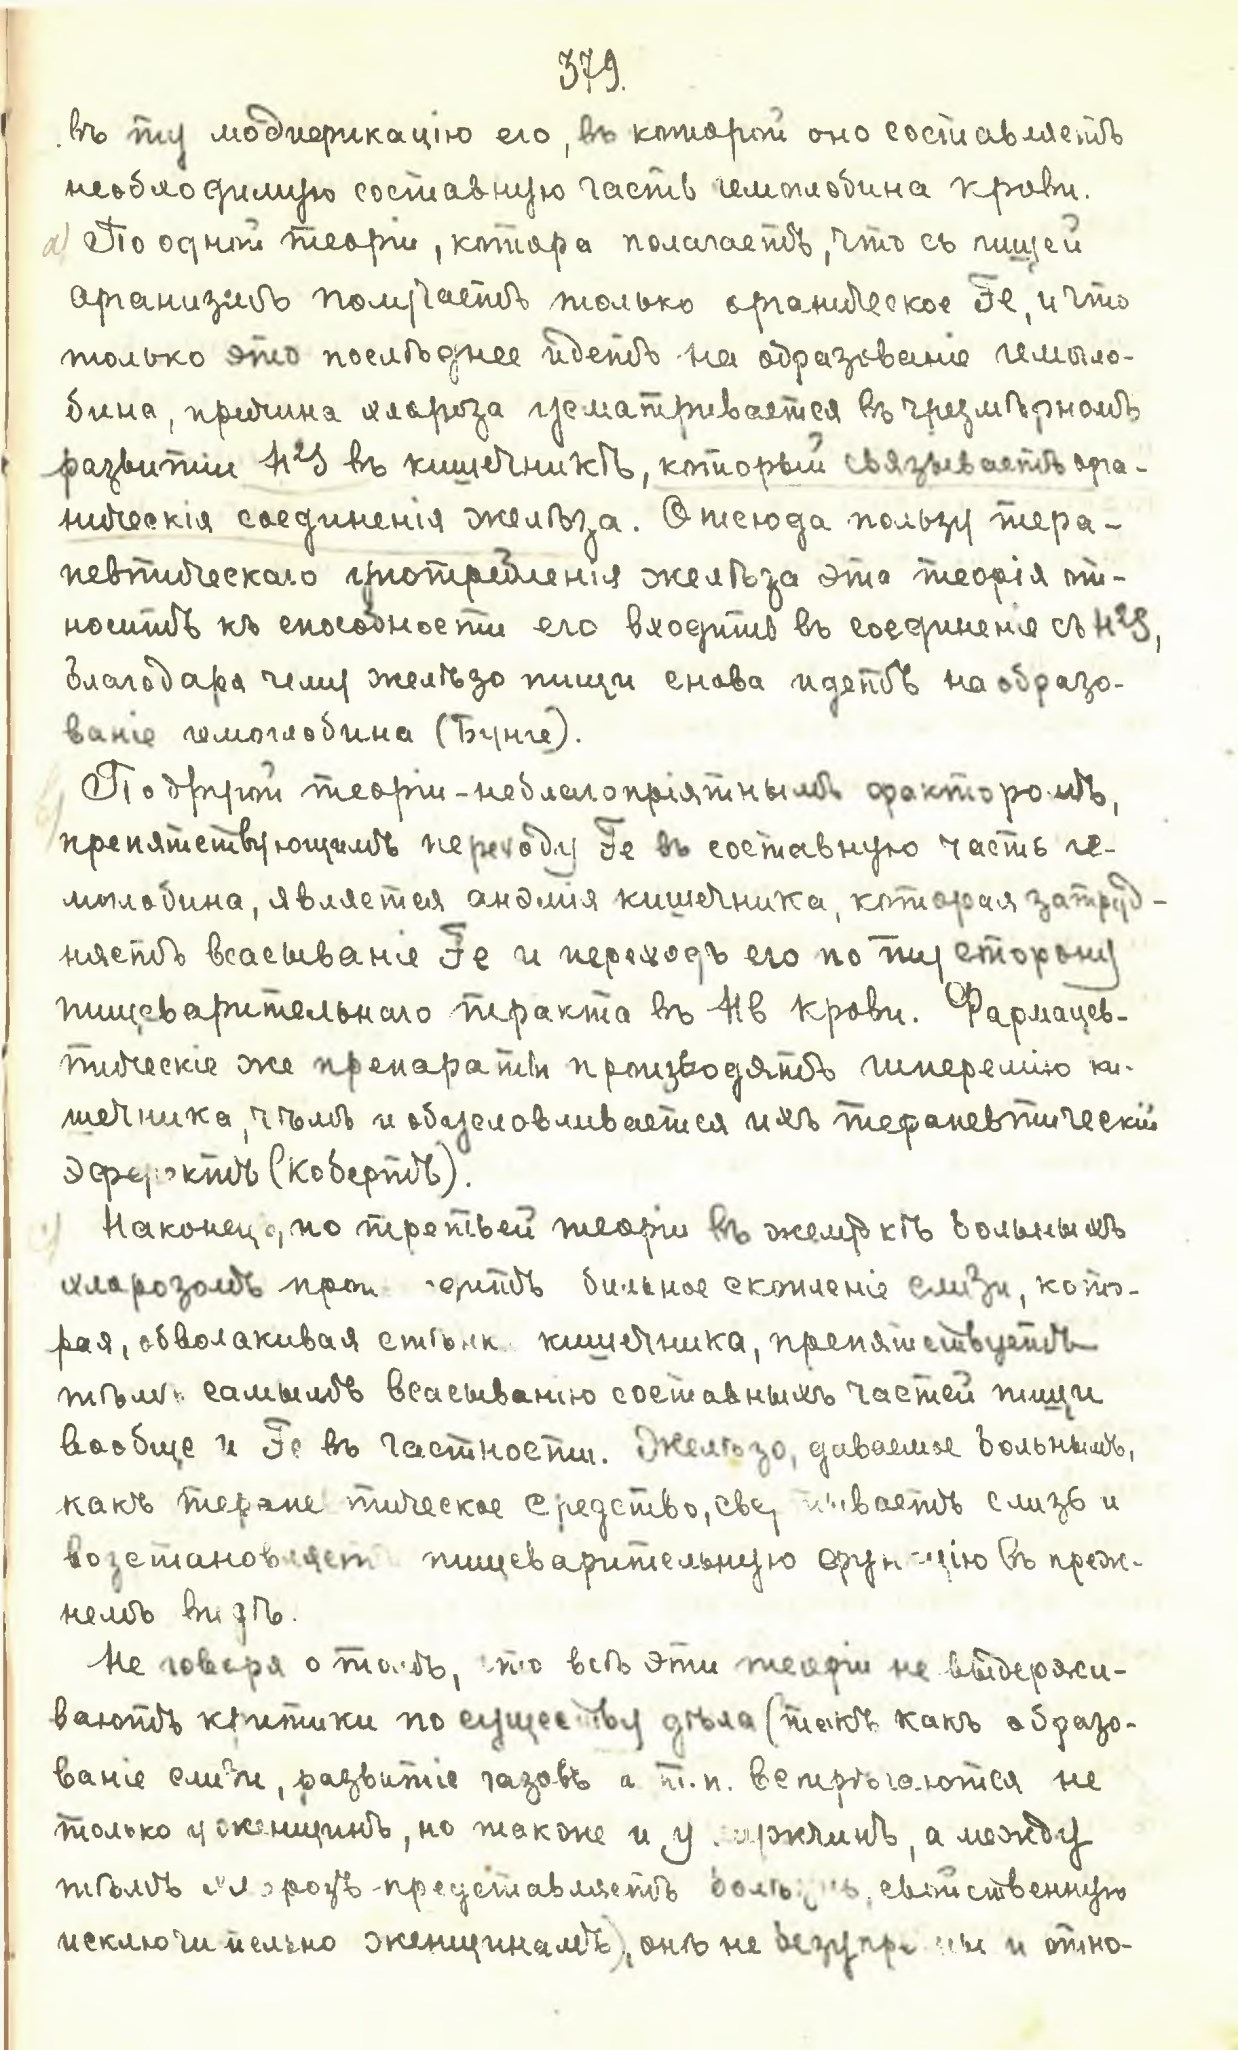 379.
въ ту модификацію его, въ которой оно составляетъ
необходимую составную часть гемоглобина крови.
а) По одной теоріи, котора полагаетъ, что съ пищей
организмъ получаетъ только органическое Fe, и что
только это послѣднее идетъ на образованіе гемогло-
бина, причина хлороза усматривается въ чрезмѣрномъ
развитіи H²S въ кишечникѣ, который связываетъ орга-
ническія соединенія желѣза. Отсюда пользу тера-
певтическаго употребленія желѣза эта теорія от-
носитъ къ способности его входить въ соединеніе съ H²S,
благодаря чему желѣзо пищи снова идетъ на образо-
ваніе гемоглобина (Бунге).
в) По другой теоріи - неблагопріятнымъ факторомъ,
препятствующимъ переходу Fe въ составную часть ге-
моглобина, является анэмія кишечника, которая затруд-
няетъ всасываніе Fe и переходъ его по ту сторону
пищеварительнаго тракта въ Hb крови. Фармацев-
тическіе же препараты производятъ гиперемію ки-
шечника, чѣмъ и обусловливается ихъ терапевтическій
эффектъ (Кобертъ).
с) Наконецъ, по третьей теоріи въ желудкѣ больныхъ
хлорозомъ происходитъ сильное скопленіе слизи, кото-
рая, обволакивая стѣнки кишечника, препятствуетъ
тѣмъ самымъ всасыванію составныхъ частей пищи
вообще и Fe въ частности. Желѣзо, даваемое больнымъ,
какъ терапевтическое средство, свертываетъ слизь и
возстановляетъ пищеварительную функцію въ преж-
немъ видѣ.
Не говоря о томъ, что всѣ эти теоріи не выдержи-
ваютъ критики по существу дѣла (такъ какъ образо-
ваніе слизи, развитіе газовъ и т.п. встрѣчаются не
только у женщинъ, но также и у мужчинъ, а между
тѣмъ хлорозъ представляетъ болѣзнь, свойственную
исключительно женщинамъ), онѣ не безупречны и отно-